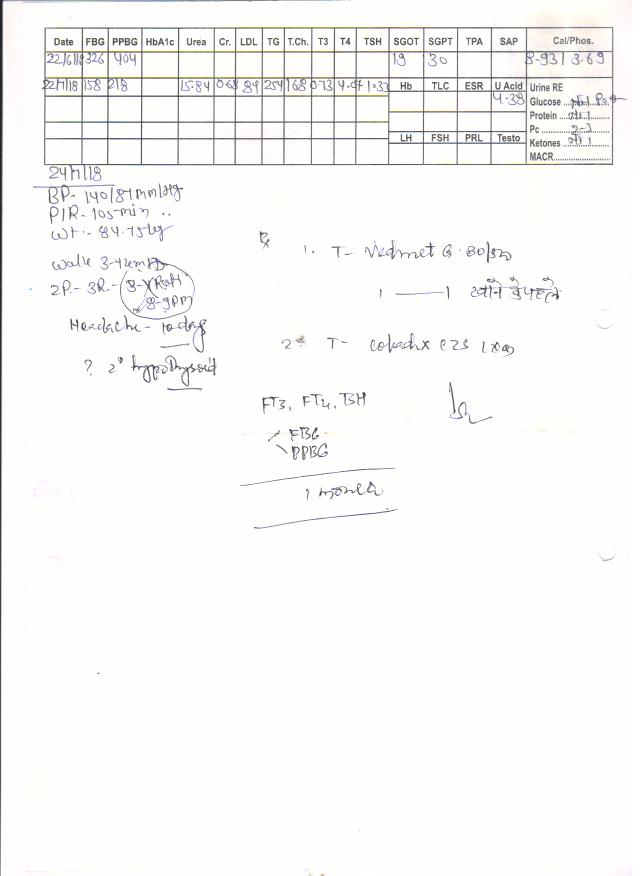 Date FBG PPBG HbA1c Urea Cr. LDL TG T.Ch. T3 T4 TSH SGOT SGPT TPA SAP Cal/Phos.
22/6/18 326 404 19 30 8.93/3.69
22/7/18 158 218 15.84 0.68 84 254 168 0.73 4.07 1.37
Hb TLC ESR U Acid Urine RE
4.38 Glucose
Protein
Pc 2-3
LH FSH PRL Testo Ketones
MACR
24/7/18
BP- 140/87 mm/Hg
P/R- 105 min
Wt.- 84.75 kg
walk
2P.- 3R.-
8-9pm
Headache - 10 days
? 2° hypothyroid
Rx
1. T- G 80/
1 — 1 खाने से पहले
2. T-
FT3, FT4, TSH
FBG
PPBG
1 month